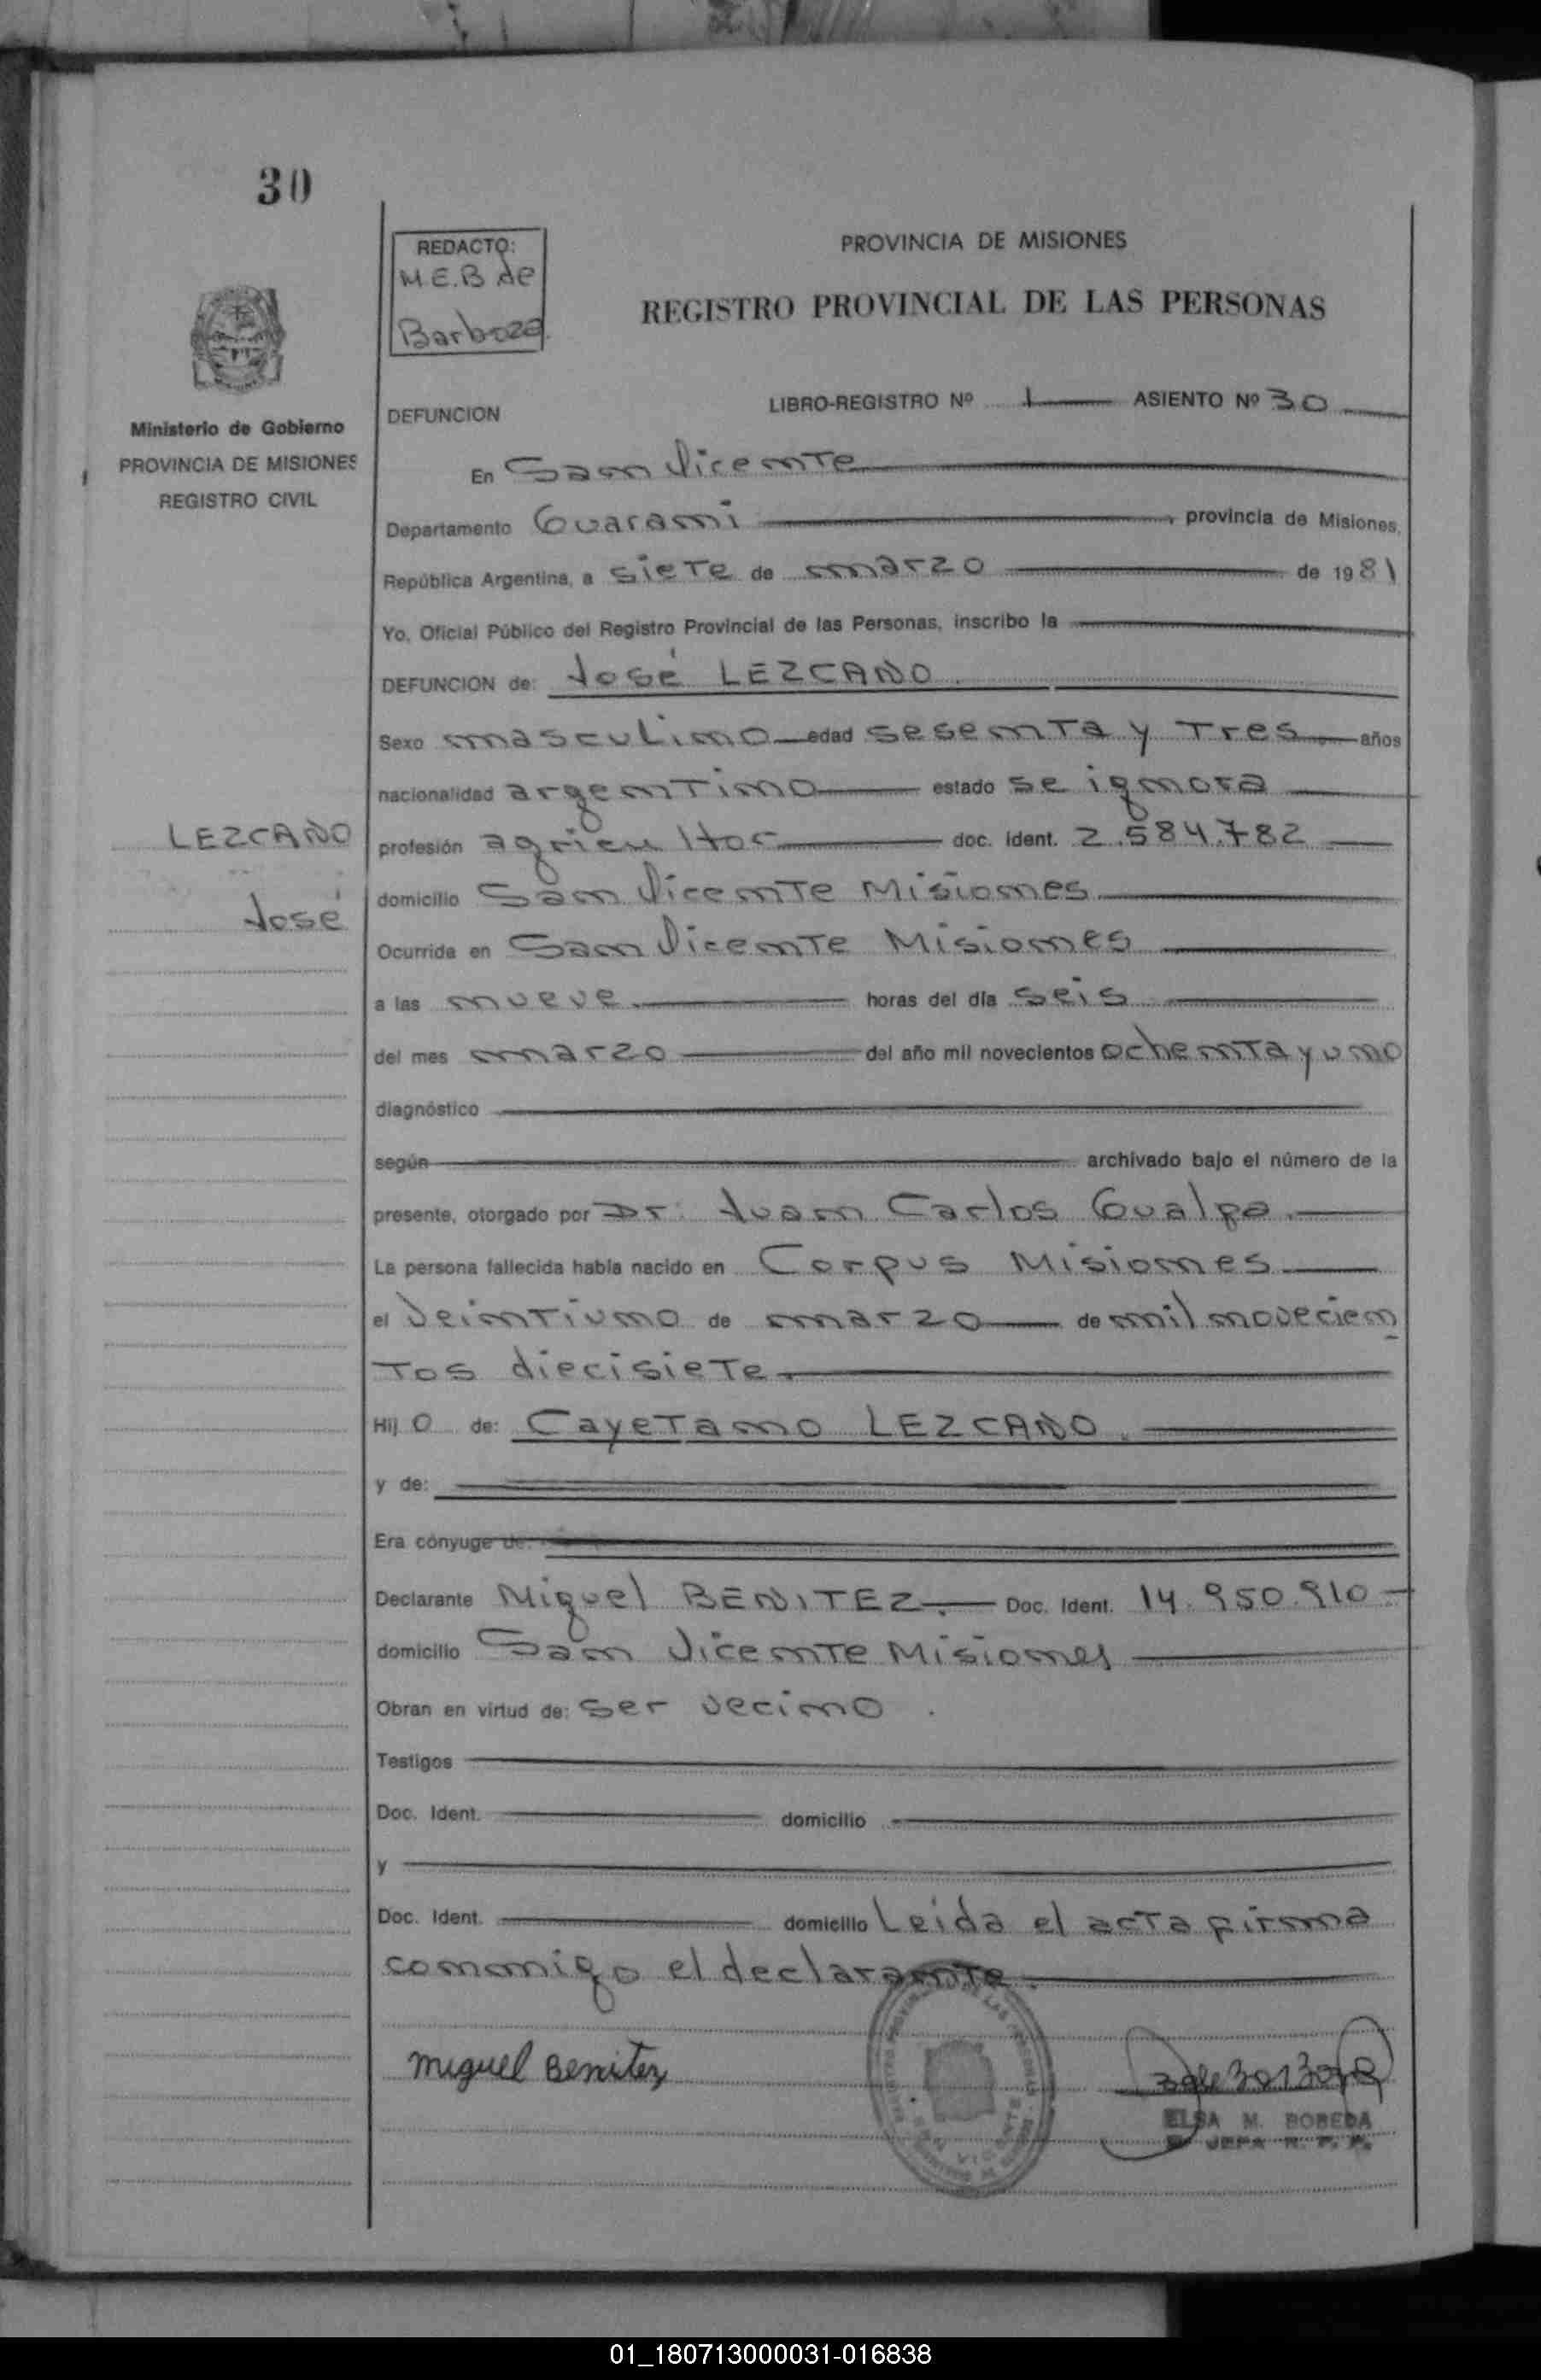 30
REDACTO:
M.E.B de
Barboza.
PROVINCIA DE MISIONES
REGISTRO PROVINCIAL DE LAS PERSONAS
Ministerio de Gobierno
PROVINCIA DE MISIONES
REGISTRO CIVIL
DEFUNCION
LIBRO-REGISTRO Nº 1 ASIENTO Nº 30
En San Vicente
Departamento Guarani, provincia de Misiones,
República Argentina, a siete de marzo de 1981
Yo, Oficial Público del Registro Provincial de las Personas, inscribo la
DEFUNCION de: José LEZCANO.
Sexo masculino edad sesenta y tres años
nacionalidad argentino estado se ignora
LEZCANO
José
profesión agricultor doc. ident. 2.584.782
domicilio San Vicente Misiones
Ocurrida en San Vicente Misiones
a las nueve horas del día seis
del mes marzo del año mil novecientos ochenta y uno
diagnóstico
según archivado bajo el número de la
presente, otorgado por Dr. Juan Carlos Gualpa.
La persona fallecida había nacido en Corpus Misiones
el veintiuno de marzo de mil novecien
tos diecisiete
Hijo de: Cayetano LEZCANO.
y de:
Era cónyuge de:
Declarante Miguel BENITEZ. Doc. Ident. 14.950.910
domicilio San Vicente Misiones
Obran en virtud de: ser vecino.
Testigos
Doc. Ident. domicilio
y
Doc. Ident. domicilio Leida el acta firma
conmigo el declarante.
Miguel Benitez
ELSA M. BOBEDA
JEFA R. P. P.
01_180713000031-016838